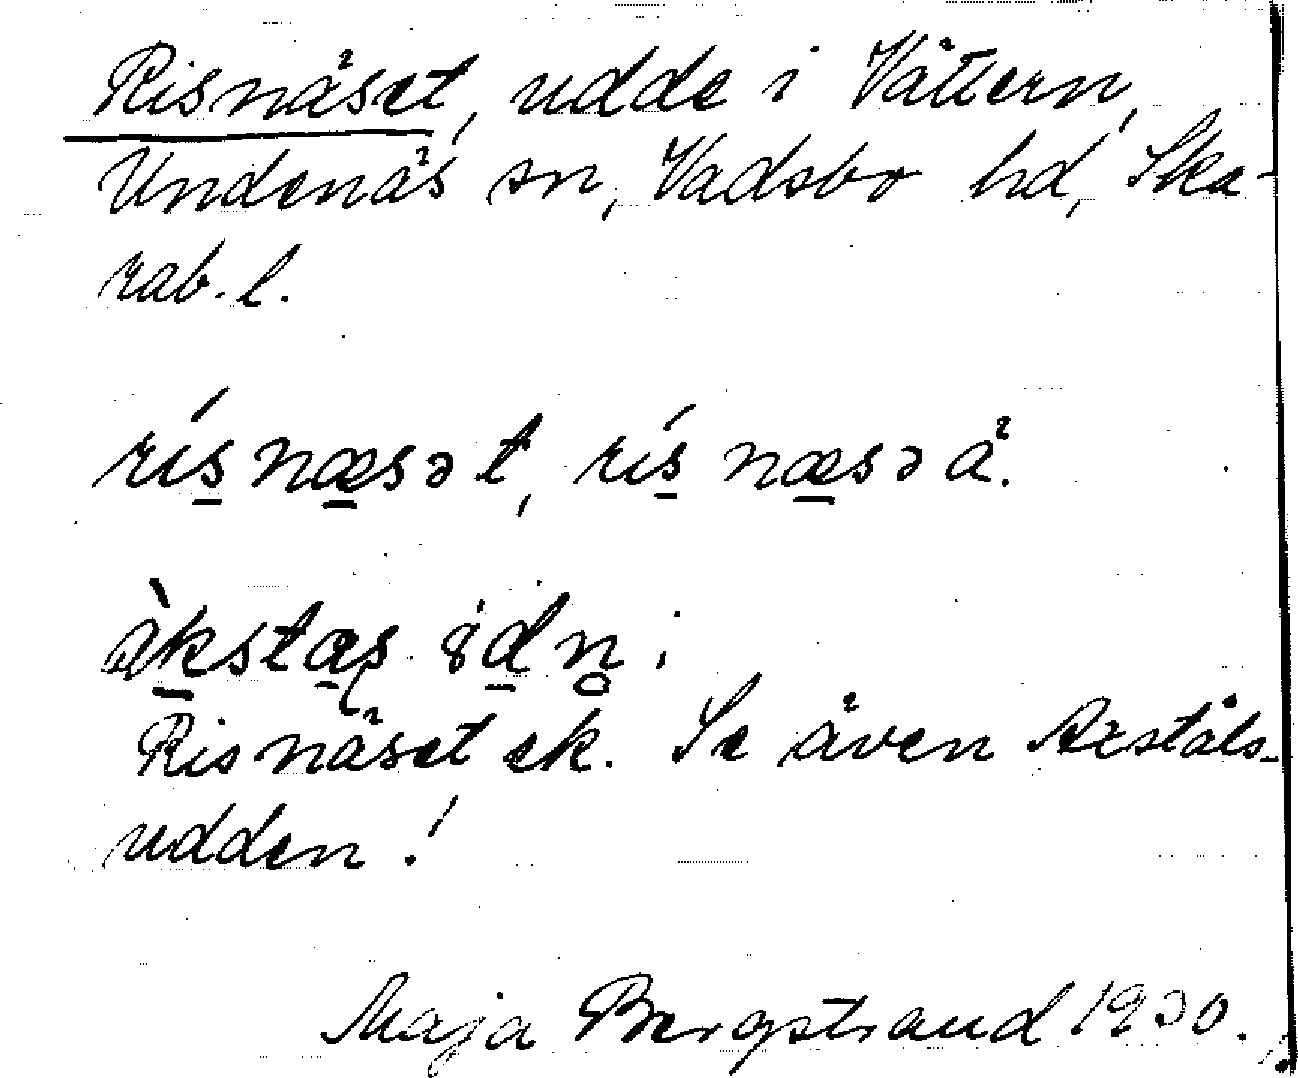 Risnäset, udde i Vättern,
Undenäs sn, Vadsbo hd, Ska-
rab. l.
rís næsət, rís næsə å.
Risnäset ek. Se även
udden!
Maja Bergstrand 1930.